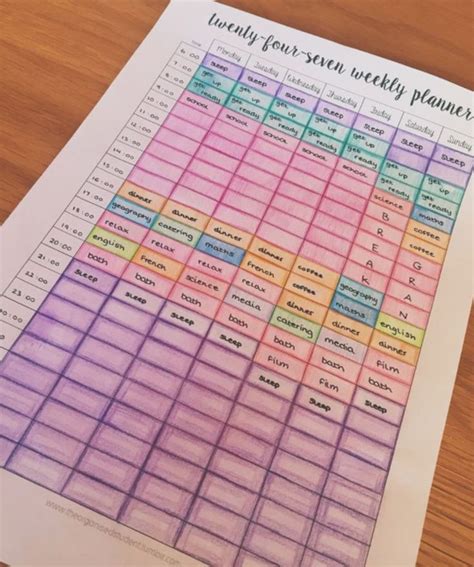 twenty-four-seven weekly planner
Monday Tuesday Wednesday Thursday Friday Saturday Sunday
6:00 sleep sleep sleep sleep sleep sleep sleep
7:00 get up get up get up get up get up
8:00 get ready get ready get ready get ready get ready get up get up
9:00 school school school school school get ready get ready
10:00 science maths
11:00 B coffee
12:00 R coffee
13:00 E G
14:00 A R
15:00 K A
16:00 dinner dinner dinner dinner coffee A N
17:00 geography catering maths french coffee geography
18:00 relax relax relax relax dinner maths english
19:00 english french science media catering dinner dinner
20:00 bath bath bath bath media film bath
21:00 sleep sleep sleep sleep bath bath film
22:00 sleep sleep sleep
23:00
www.theorganisedstudent.tumblr.com